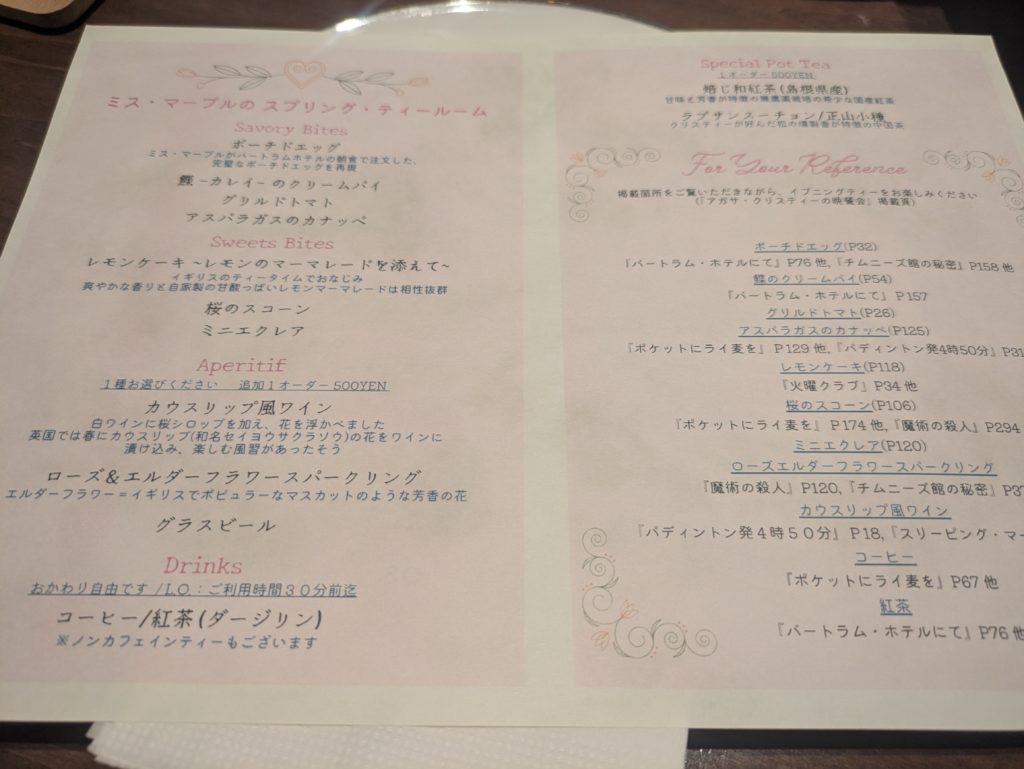 ミス・マープルの スプリング・ティールーム
Savory Bites
ポーチドエッグ
ミス・マープルがバートラムホテルの朝食で注文した、
完璧なポーチドエッグを再現
鰈 -カレイ- のクリームパイ
グリルドトマト
アスパラガスのカナッペ
Sweets Bites
レモンケーキ ~レモンのマーマレードを添えて~
イギリスのティータイムでおなじみ
爽やかな香りと自家製の甘酸っぱいレモンマーマレードは相性抜群
桜のスコーン
ミニエクレア
Aperitif
1種お選びください 追加1オーダー500YEN
カウスリップ風ワイン
白ワインに桜シロップを加え、花を浮かべました
英国では春にカウスリップ(和名セイヨウサクラソウ)の花をワインに
漬け込み、楽しむ風習があったそう
ローズ&エルダーフラワースパークリング
エルダーフラワー＝イギリスでポピュラーなマスカットのような芳香の花
グラスビール
Drinks
おかわり自由です /L.O.：ご利用時間30分前迄
コーヒー/紅茶(ダージリン)
※ノンカフェインティーもございます
Special Pot Tea
1オーダー 500YEN
焙じ和紅茶(島根県産)
甘味と芳香が特徴の無農薬栽培の希少な国産紅茶
ラプサンスーチョン/正山小種
クリスティーが好んだ松の燻製香が特徴の中国茶
For Your Reference
掲載箇所をご覧いただきながら、イブニングティーをお楽しみください
(『アガサ・クリスティーの晩餐会』掲載頁)
ポーチドエッグ(P32)
『バートラム・ホテルにて』P76 他、『チムニーズ館の秘密』P158 他
鰈のクリームパイ(P54)
『バートラム・ホテルにて』P157
グリルドトマト(P26)
アスパラガスのカナッペ(P125)
『ポケットにライ麦を』P129 他、『パディントン発4時50分』P31
レモンケーキ(P118)
『火曜クラブ』P34 他
桜のスコーン(P106)
『ポケットにライ麦を』P174 他、『魔術の殺人』P294
ミニエクレア(P120)
ローズエルダーフラワースパークリング
『魔術の殺人』P120、『チムニーズ館の秘密』P37
カウスリップ風ワイン
『パディントン発4時50分』P18、『スリーピング・マー
コーヒー
『ポケットにライ麦を』P67 他
紅茶
『バートラム・ホテルにて』P76 他